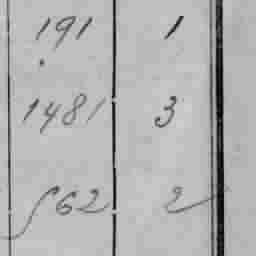 191 1
1481 3
562 2